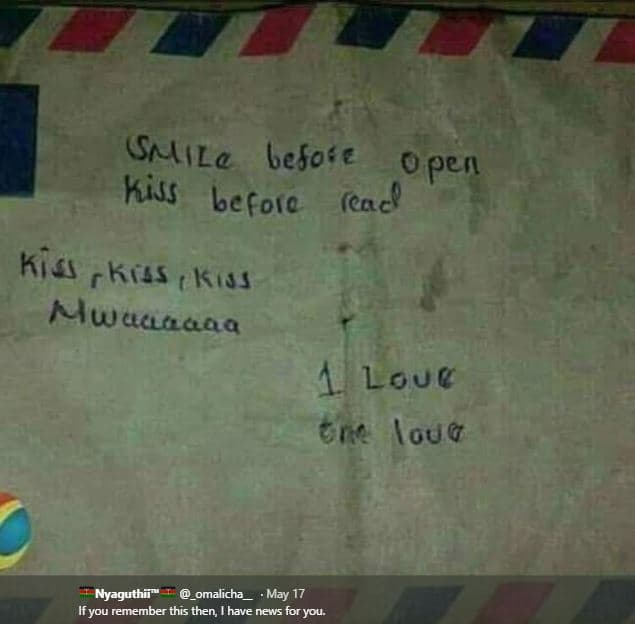 SMILe before open
Kiss before read
Kiss, Kiss, Kiss
Mwaaaaaa
1 Love
One love
🇰🇪Nyaguthii™🇰🇪 @_omalicha__ · May 17
If you remember this then, I have news for you.